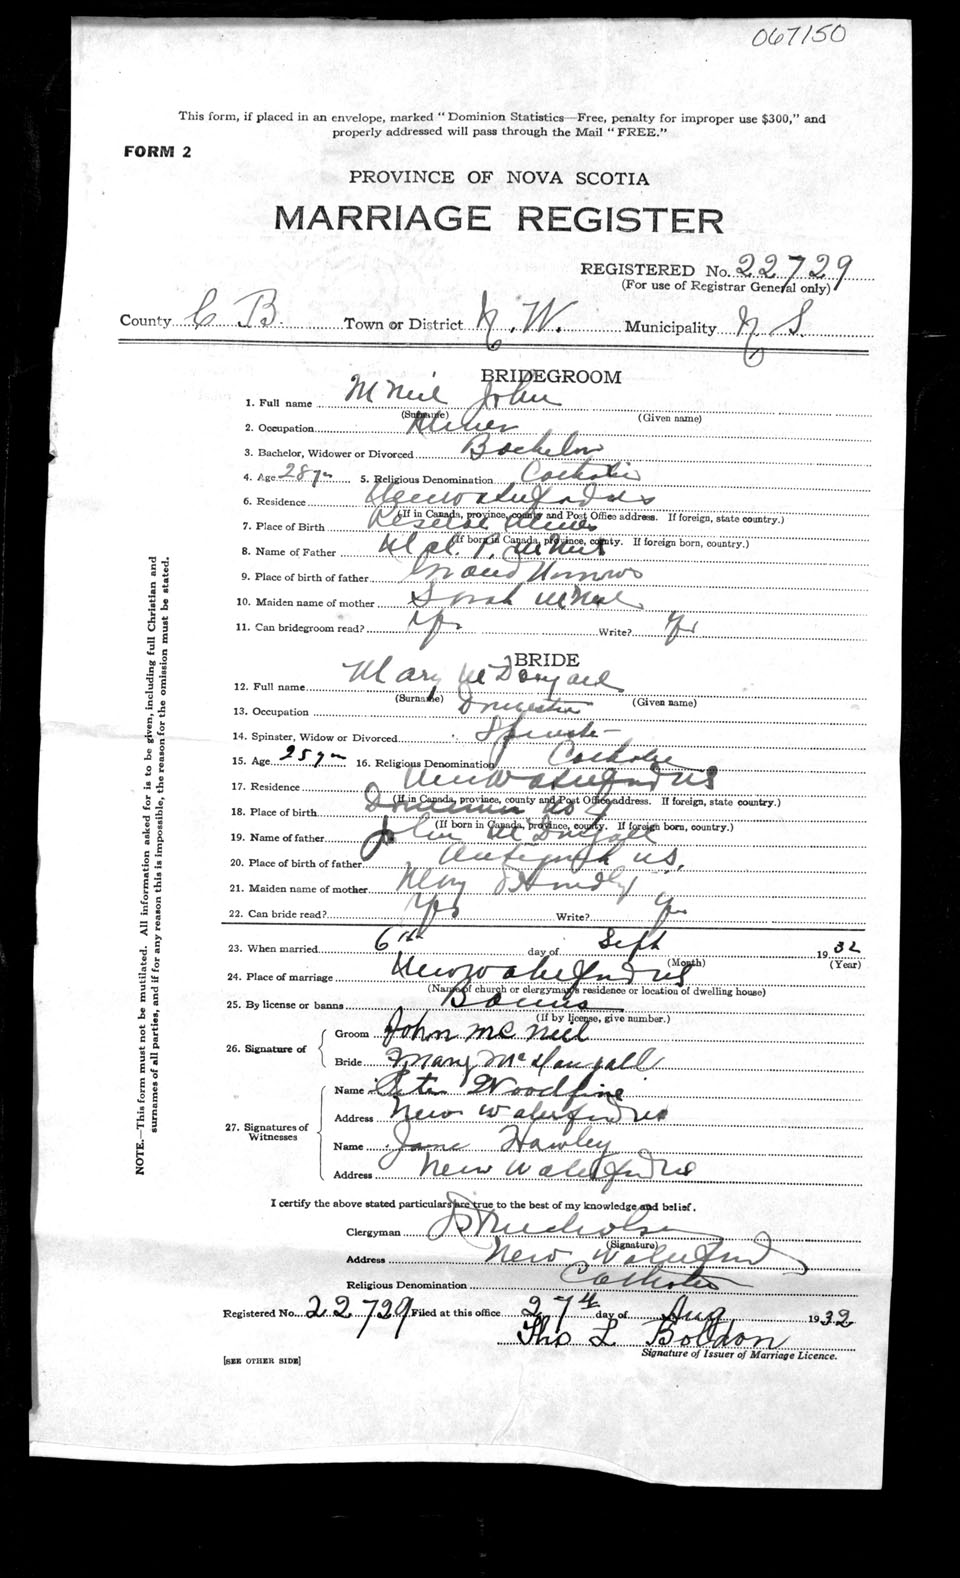 067150
This form, if placed in an envelope, marked "Dominion Statistics—Free, penalty for improper use $300," and
properly addressed will pass through the Mail "FREE."
FORM 2
PROVINCE OF NOVA SCOTIA
MARRIAGE REGISTER
REGISTERED No. 22729
(For use of Registrar General only)
County C B. Town or District N. W. Municipality N S.
BRIDEGROOM
1. Full name McNeil John
(Surname) (Given name)
2. Occupation Miner
3. Bachelor, Widower or Divorced Bachelor
4. Age 28 yrs 5. Religious Denomination Catholic
6. Residence New Waterford NS
(If in Canada, province, county and Post Office address. If foreign, state country.)
7. Place of Birth Reserve Mines
(If born in Canada, province, county. If foreign born, country.)
8. Name of Father P. McNeil
9. Place of birth of father Grand Narrows
10. Maiden name of mother Sarah McNeil
11. Can bridegroom read? Yes Write? Yes
BRIDE
12. Full name Mary McDougall
(Surname) (Given name)
13. Occupation Domestic
14. Spinster, Widow or Divorced Spinster
15. Age 25 yrs 16. Religious Denomination Catholic
17. Residence New Waterford NS
(If in Canada, province, county and Post Office address. If foreign, state country.)
18. Place of birth Dominion No
(If born in Canada, province, county. If foreign born, country.)
19. Name of father John McDougall
20. Place of birth of father Antigonish NS.
21. Maiden name of mother Mary
22. Can bride read? Yes Write? Yes
23. When married 6th day of Sept 1932
(Month) (Year)
24. Place of marriage New Waterford NS
(Name of church or clergyman's residence or location of dwelling house)
25. By license or banns Banns
(If by license, give number.)
26. Signature of Groom John McNeil
Bride Mary McDougall
27. Signatures of Witnesses Name Peter Woodfine
Address New Waterford NS
Name Jane Hawley
Address New Waterford NS
I certify the above stated particulars are true to the best of my knowledge and belief.
Clergyman Nicholson
(Signature)
Address New Waterford
Religious Denomination Catholic
Registered No. 22729 Filed at this office 27th day of Aug 1932
Thos L Boldon
Signature of Issuer of Marriage Licence.
[SEE OTHER SIDE]
NOTE.—This form must not be mutilated. All information asked for is to be given, including full Christian and
surnames of all parties, and if for any reason this is impossible, the reason for the omission must be stated.